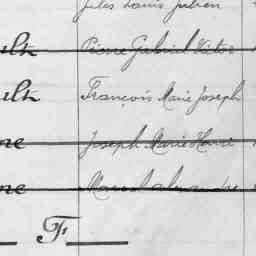 Jules Louis Julien
ult Pierre Gabriel Victor
ult François Marie Joseph
ne Joseph Marie Henri
ne Marcel Alexandre
F